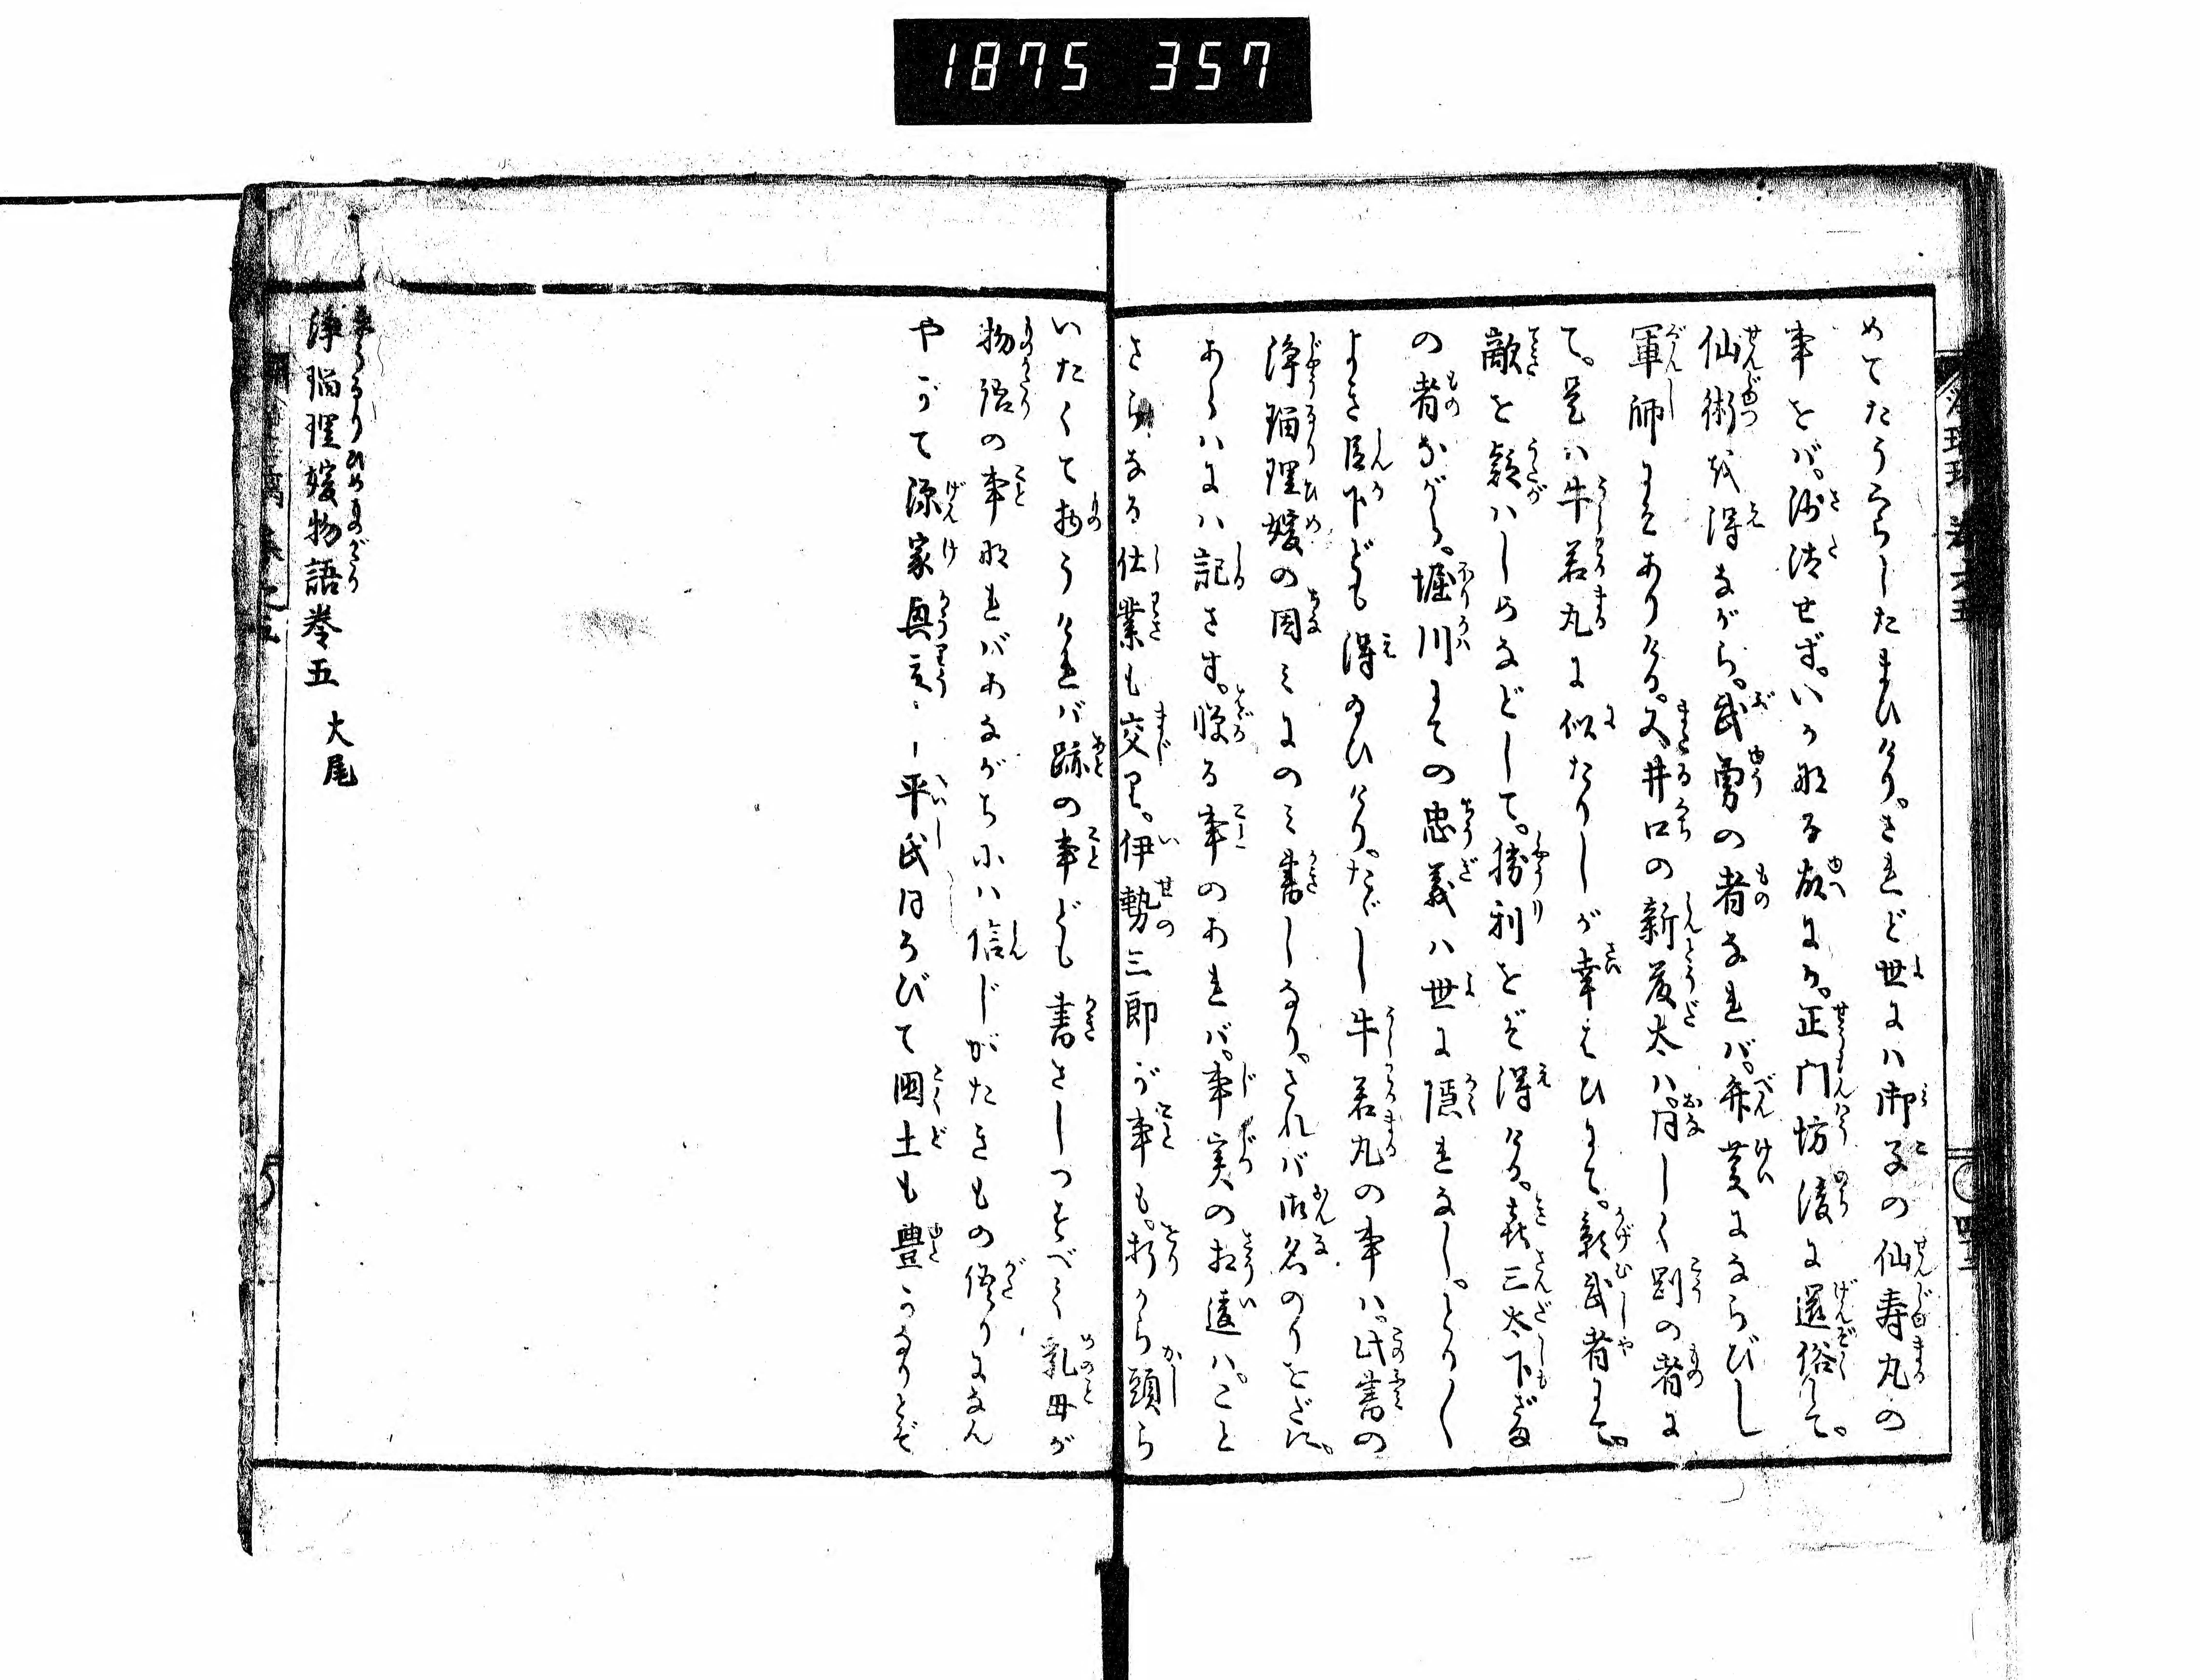 1875 357
めてたううらしたまひけり。されど世にハ御子の仙寿丸の
事をバ。沙汰せず。いかなる故にか。正門坊後に還俗して。
仙術を得ながら。武勇の者なれバ。弁慶にならびし
軍師にてありける。又井口の新藤太ハ。同じく剛の者に
て。是ハ牛若丸に似たりしが幸ひにて。影武者にて。
敵を疑ハしめなどして。勝利をぞ得ける。喜三太下ざま
の者ながら。堀川にての忠義ハ世に隠れなし。とりく
よき臣下ども得給ひけり。たゞし牛若丸の事ハ。此書の
浄瑠理媛の因ミにのミ書しなり。されバ御名のりをだに。
あらハにハ記さず。憚る事のあれバ。事実の相違ハ。こと
さらなる仕業も交り。伊勢三郎が事も。折から頭ら
いたくて物うければ跡の事ども書さしつすべて乳母が
物語の事なれバあながちにハ信じがたきもの語りになん
やがて源家興立し平氏ほろびて国土も豊かなりとぞ
浄瑠理媛物語巻五 大尾